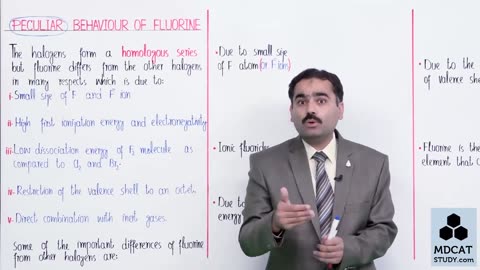 PECULIAR BEHAVIOUR OF FLUORINE
The halogens form a homologous series
but fluorine differs from the other halogens
in many respects which is due to:
i- Small size of F and F⁻ ion
ii- High first ionization energy and electronegativity
iii- Low dissociation energy of F₂ molecule as
compared to Cl₂ and Br₂.
iv- Restriction of the valence shell to an octet.
v- Direct combination with inert gases.
Some of the important differences of fluorine
from other halogens are:
• Due to small size
of F atom (or F⁻ ion)
• Ionic fluorid
• Due to
energy
• Due to the
of valence shel
• Fluorine is the
element that c
MDCAT
STUDY.com